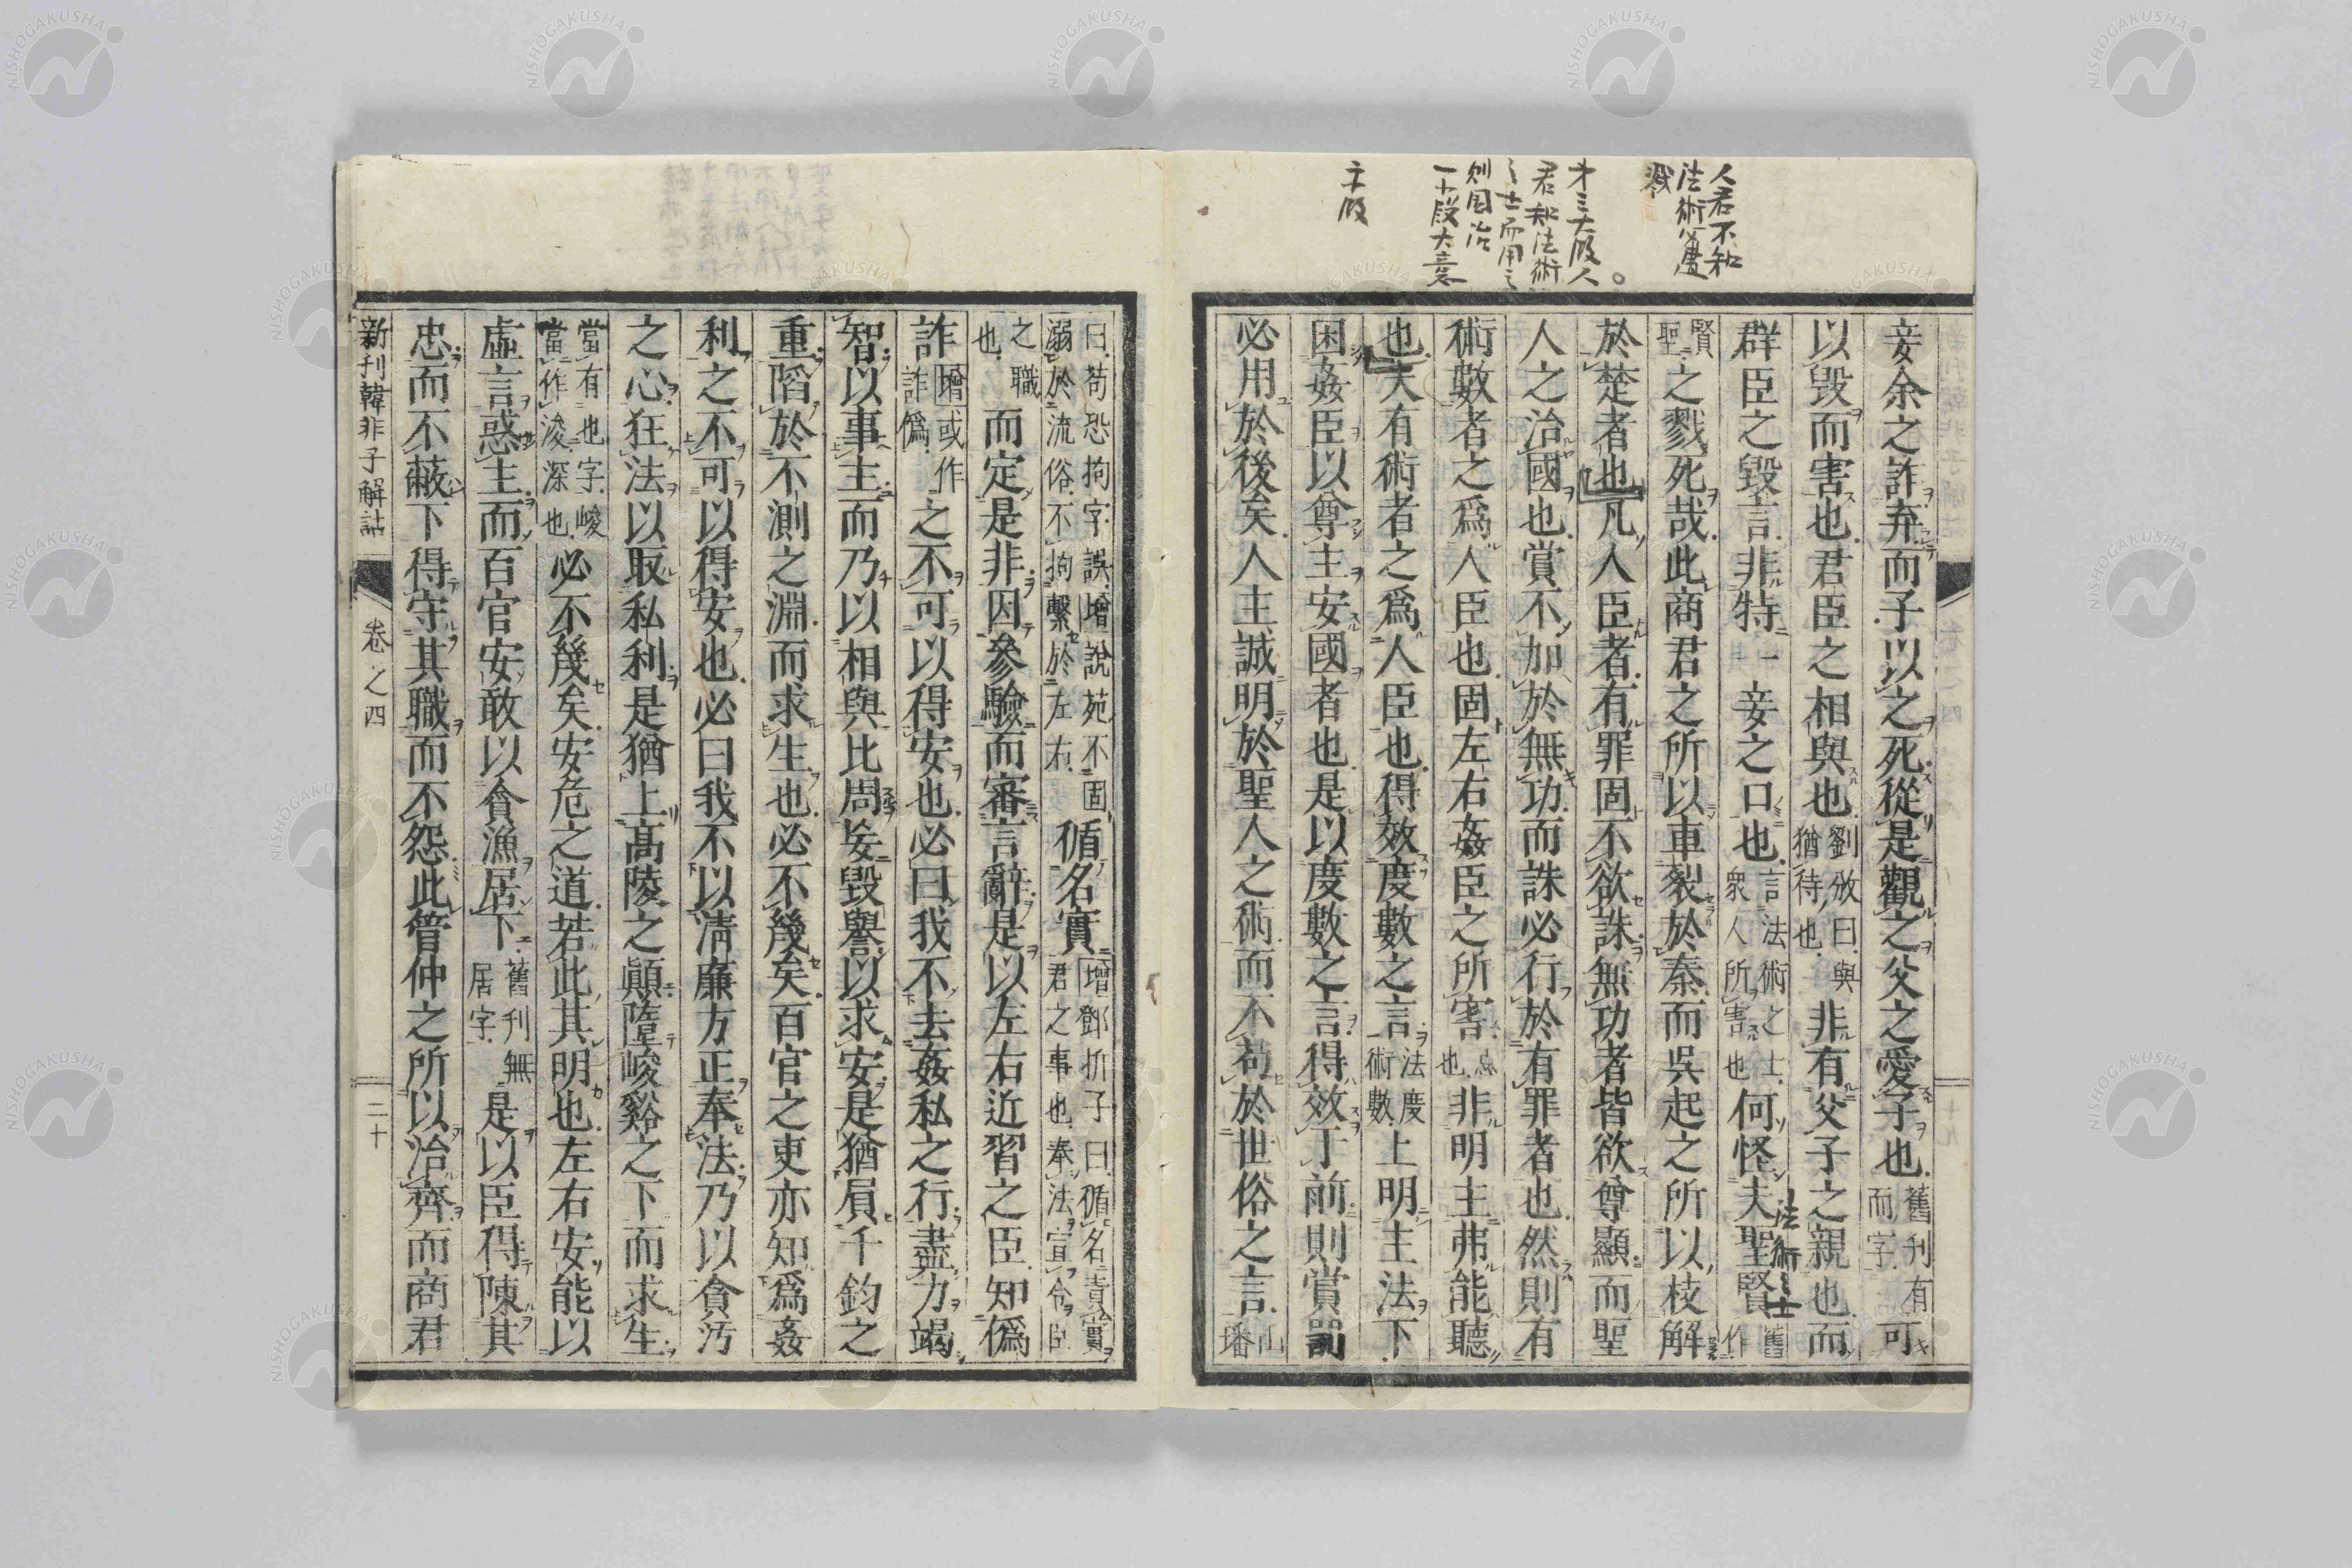 人君不知
法術蔞
戮
才三大段人
君知法術
之士而用之
則国治
一十段大意
二十段
妾余之詐弃而子以之死從是觀之父之愛子也舊刊有而字可
以毀而害也君臣之相與也劉攽曰與猶待也非有父子之親也而
群臣之毀言非特一妾之口也言法術之士衆人所害也何怪夫聖賢舊作
法術之士
賢聖之戮死哉此商君之所以車裂於秦而吳起之所以枝解
於楚者也凡人臣者有罪固不欲誅無功者皆欲尊顯而聖
人之治國也賞不加於無功而誅必行於有罪者也然則有
術數者之爲人臣也固左右姦臣之所害也非明主弗能聽
也夫有術者之爲人臣也得效度數之言法度術數上明主法下
困姦臣以尊主安國者也是以度數之言得效于前則賞罰
必用於後矣人主誠明於聖人之術而不苟於世俗之言山墦
曰苟恐拘字誤增說苑不固溺於流俗不拘繫於左右循名實增鄧析子曰循名責實君之事也奉法宣令臣
之職也而定是非因參驗而審言辭是以左右近習之臣知僞
詐增或作詐僞之不可以得安也必曰我不去姦私之行盡力竭
智以事主而乃以相與比周妄毀譽以求安是猶負千鈞之
重陷於不測之淵而求生也必不幾矣百官之吏亦知爲姦
利之不可以得安也必曰我不以淸廉方正奉法乃以貪汚
之心狂法以取私利是猶上高陵之顚墮峻谿之下而求生
當有也字峻當作浚深也必不幾矣安危之道若此其明也左右安能以
虛言惑主而百官安敢以貪漁居下舊刊無居字是以臣得陳其
忠而不蔽下得守其職而不怨此管仲之所以治齊而商君
新刊韓非子解詁 卷之四 二十
NISHOGAKUSHA